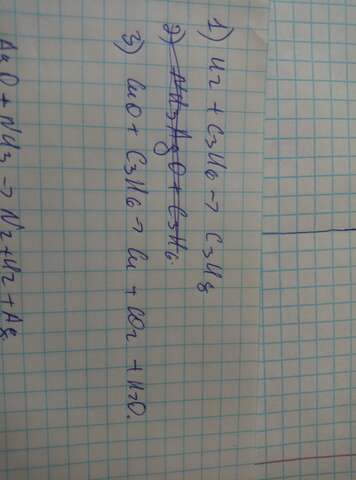 1) H2 + C3H6 → C3H8
2) NH3AgO + C3H6
3) CuO + C3H6 → Cu + CO2 + H2O.
AgO + NH3 → N2 + H2 + Ag